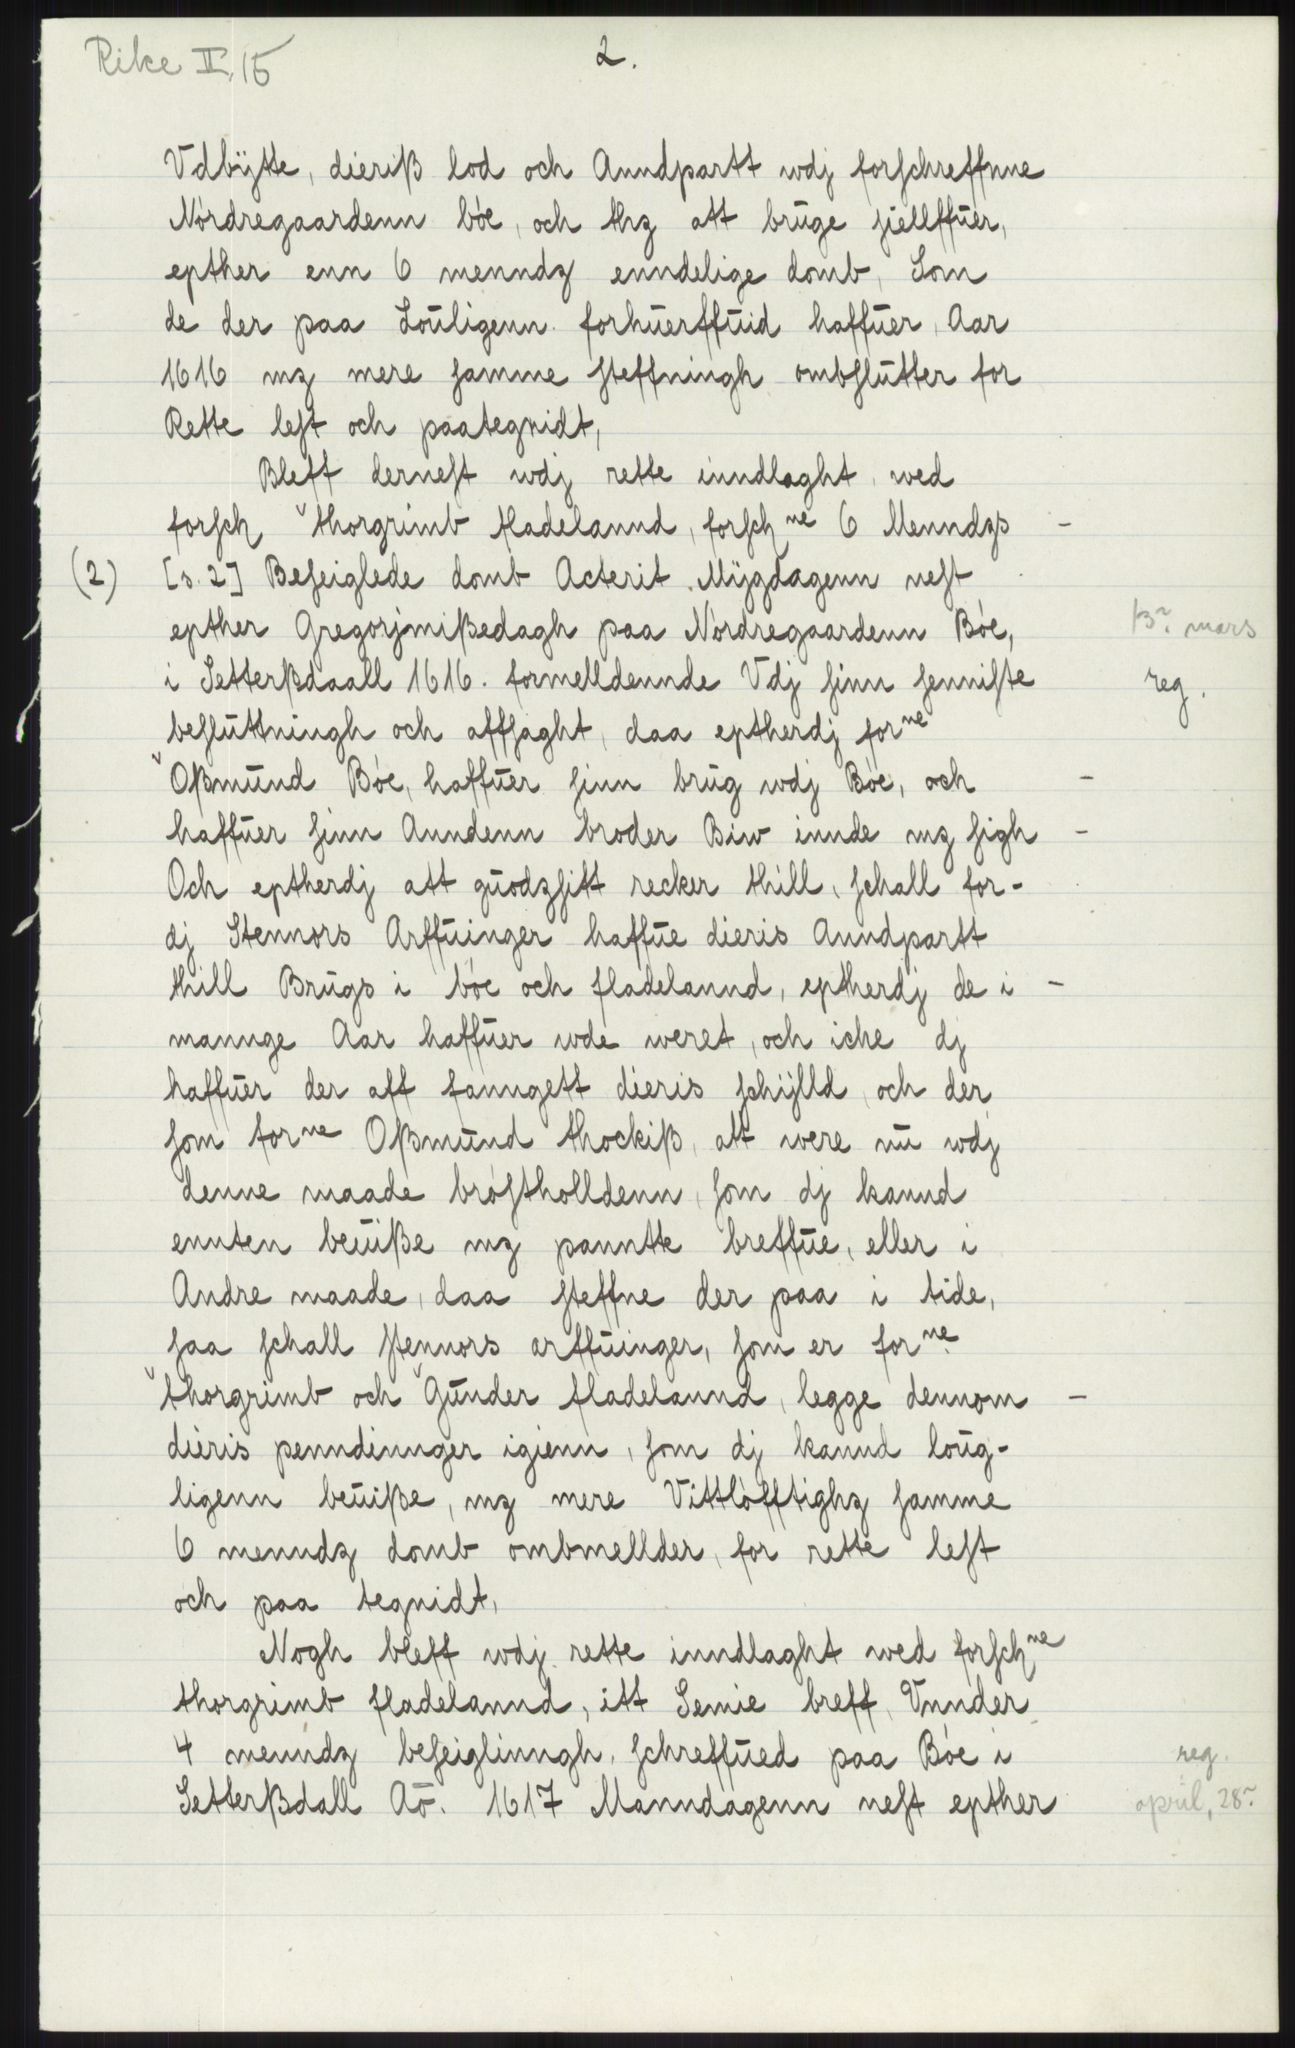 Rike II, 15
2.
Vdbÿtte, dieriß lod och Anndpartt wdj forschreffnne
Nordregaardenn bóe, och thz att brŭge siellffŭer,
epther enn 6 menndz enndelige domb, Som
de der paa Loŭligenn forhŭerffŭid haffŭer, Aar
1616 mz mere samme steffningh ombslŭtter for
Rette lest och paategnidt,
Bleff dernest wdj rette inndlaght wed
forsch thorgrimb fladelannd, forschne 6 Menndzs –
(2) [s. 2] Beseiglede domb Acterit Mÿgdagenn nest
epther Gregorjmißedagh paa Nordregaardenn Bóe, 13⁓ mars
i Setterßdaall 1616. formelldennde Vdj sinn senniste reg.
beslŭttningh och affsaght, daa eptherdj forne
Oßmŭnd Bóe, haffŭer sinn brŭg wdj Bóe, och –
haffŭer sinn Anndenn broder Biw innde mz sigh –
Och eptherdj att gŭodzsitt recker thill, schall for-
dj Stennors Arffŭinger haffŭe dieris Anndpartt
thill Brŭgs i bóe och fladelannd, eptherdj de i –
mannge Aar haffŭer wde weret, och iche dj
haffŭer der aff fanngett dieris schÿlld, och der
som forne Oßmŭnd thockiß, att were nŭ wdj
denne maade bróstholldenn, som dj kannd
ennten beŭiße mz panntte breffŭe, eller i
Andre maade, daa steffne der paa i tide,
saa schall stennors arffŭinger, som er forne
thorgrimb och Gŭnder fladelannd, legge dennom –
dieris penndinnger igienn, som dj kannd loŭg-
ligenn beŭiße, mz mere Vittlófftighz samme
6 menndz domb ombmellder, for rette lest
och paa tegnidt,
Nogh bleff wdj rette inndlaght wed forschne
thorgrimb fladelannd, itt Semie breff, Vnnder
4 menndz beseiglinngh, schreffŭed paa Bóe i reg.
Setterßdall Aō. 1617 Manndagenn nest epther april, 28⁓